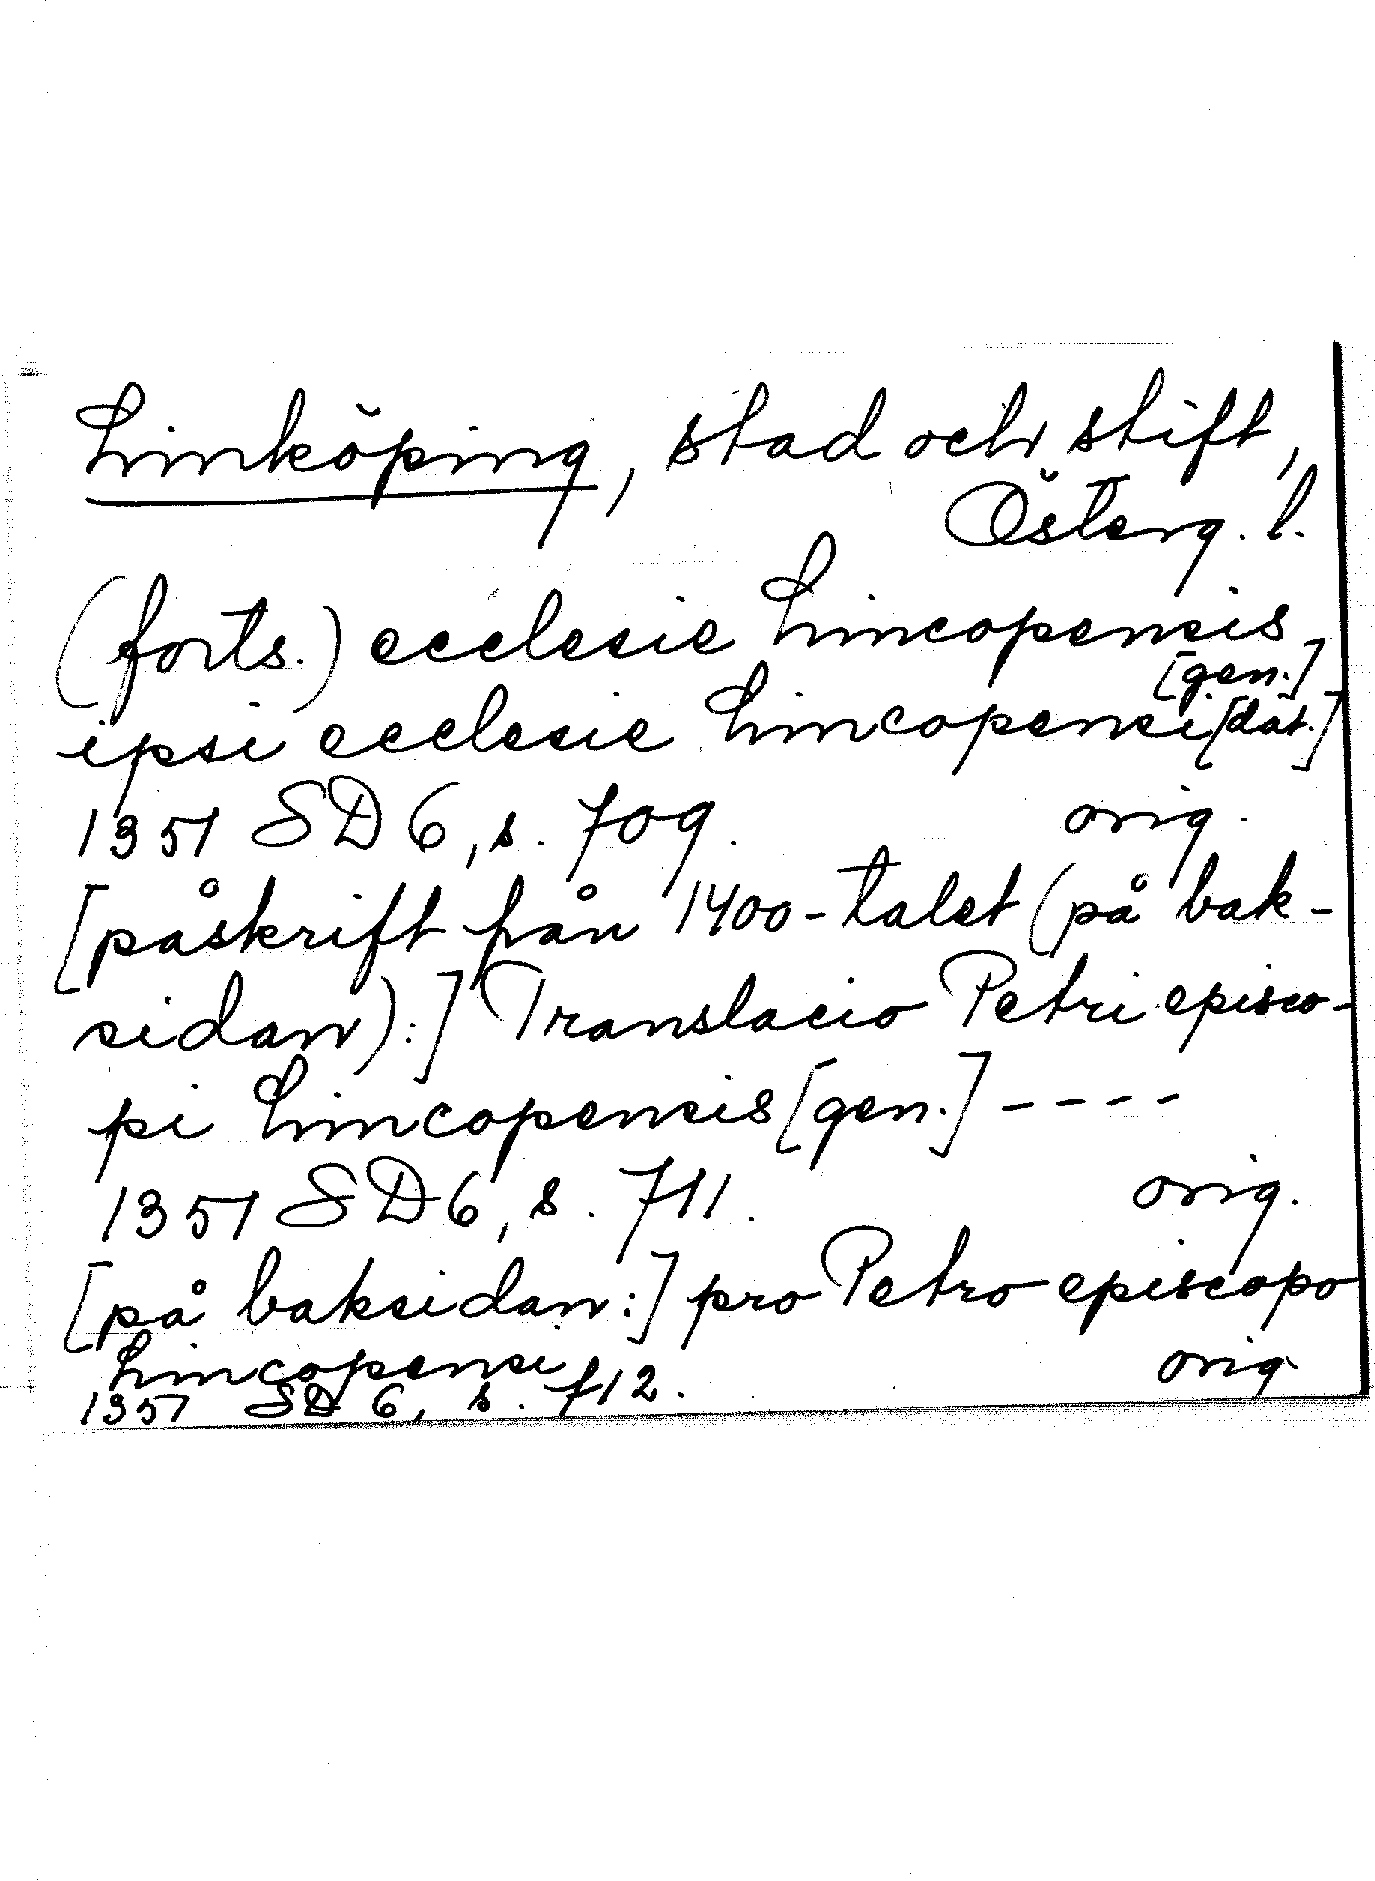 Linköping, stad och stift,
Österg. l.
(forts.) ecclesie Lincopensis
[gen.]
ipsi ecclesie Lincopensi [dat.]
1351 SD 6, s. 709. orig.
[påskrift från 1400-talet (på bak-
sidan):] Translacio Petri episco-
pi Lincopensis [gen.] ----
1351 SD 6, s. 711. orig.
[på baksidan:] pro Petro episcopo
Lincopensi orig
1351 SD 6, s. 712.